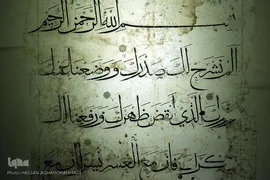 بسم الله الرحمن الرحيم
الم نشرح لك صدرك ووضعنا عنك
وزرك الذي انقض ظهرك ورفعنا لك
ذكرك فان مع العسر يسرا ان مع
Photo:HASSAN AGHAMOHAMMADI